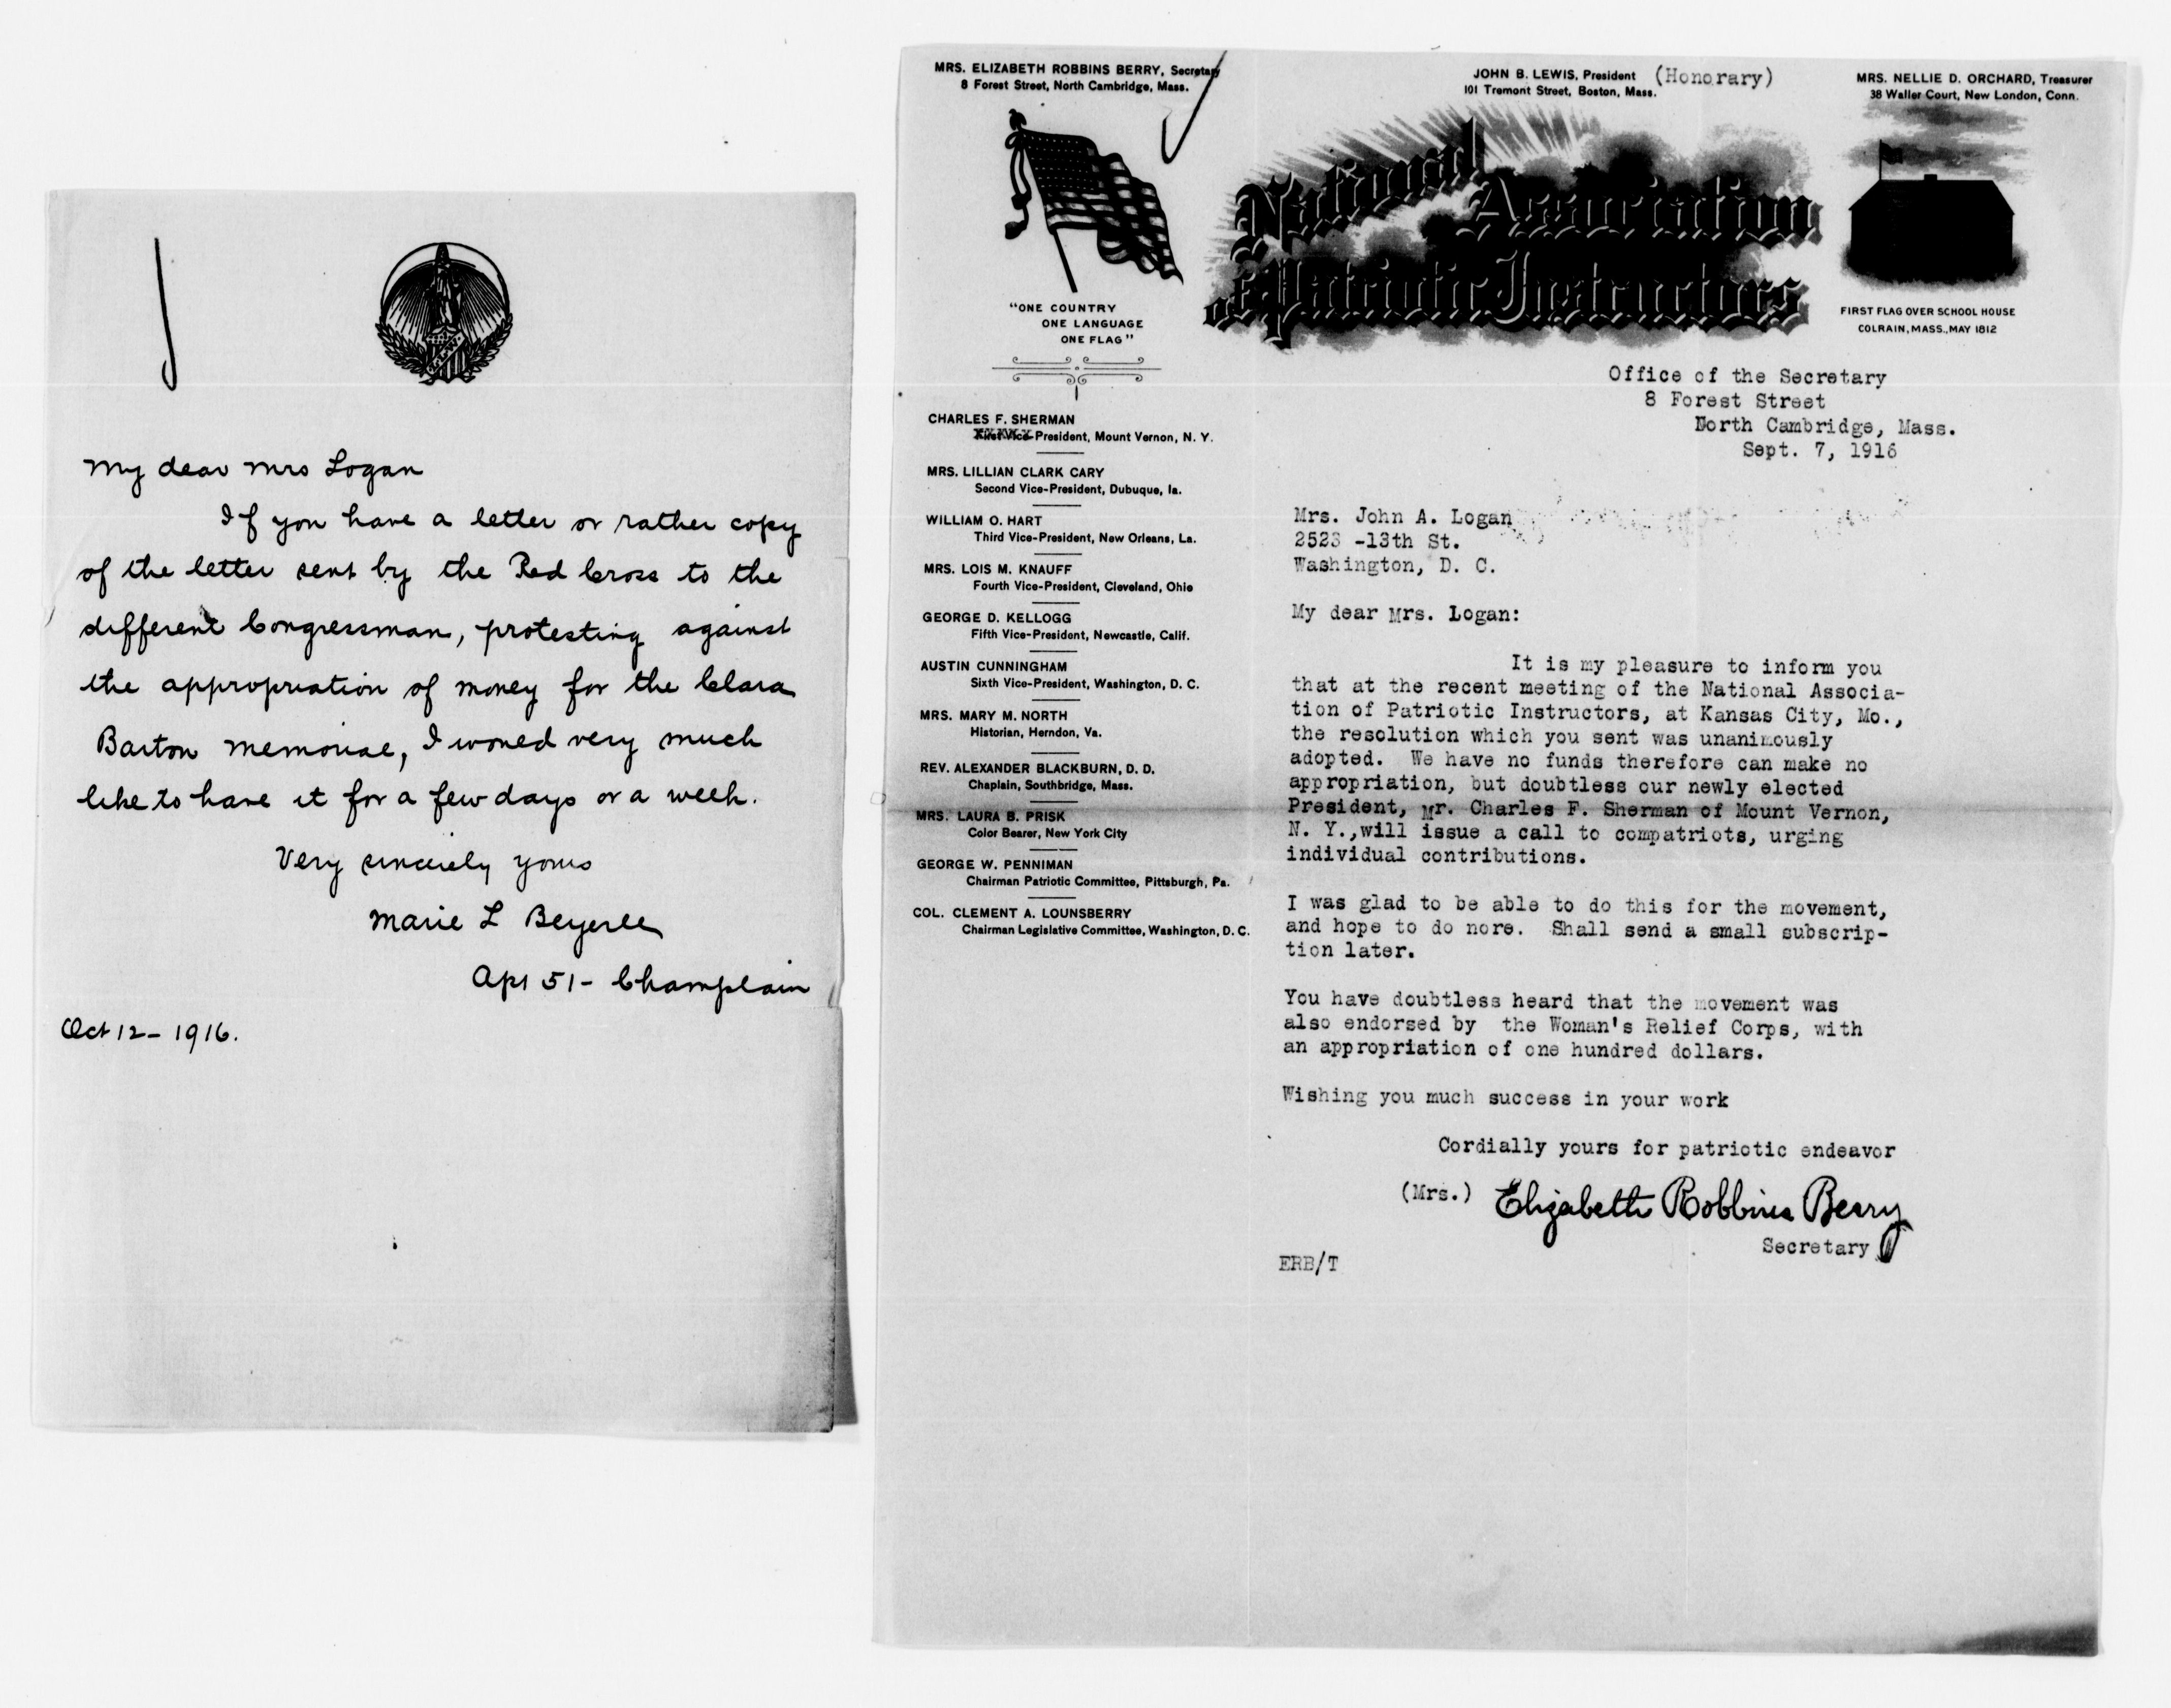 My dear Mrs Logan
If you have a letter or rather copy
of the letter sent by the Red Cross to the
different Congressman, protesting against
the appropriation of money for the Clara
Barton Memorial, I would very much
like to have it for a few days or a week.
Very sincerely yours
Marie L Beyerle
Apt 51 - Champlain
Oct 12 - 1916.
MRS. ELIZABETH ROBBINS BERRY, Secretary
8 Forest Street, North Cambridge, Mass.
JOHN B. LEWIS, President (Honorary)
101 Tremont Street, Boston, Mass.
MRS. NELLIE D. ORCHARD, Treasurer
38 Waller Court, New London, Conn.
National Association
of Patriotic Instructors
"ONE COUNTRY
ONE LANGUAGE
ONE FLAG"
FIRST FLAG OVER SCHOOL HOUSE
COLRAIN, MASS., MAY 1812
CHARLES F. SHERMAN
First Vice-President, Mount Vernon, N. Y.
MRS. LILLIAN CLARK CARY
Second Vice-President, Dubuque, Ia.
WILLIAM O. HART
Third Vice-President, New Orleans, La.
MRS. LOIS M. KNAUFF
Fourth Vice-President, Cleveland, Ohio
GEORGE D. KELLOGG
Fifth Vice-President, Newcastle, Calif.
AUSTIN CUNNINGHAM
Sixth Vice-President, Washington, D. C.
MRS. MARY M. NORTH
Historian, Herndon, Va.
REV. ALEXANDER BLACKBURN, D. D.
Chaplain, Southbridge, Mass.
MRS. LAURA B. PRISK
Color Bearer, New York City
GEORGE W. PENNIMAN
Chairman Patriotic Committee, Pittsburgh, Pa.
COL. CLEMENT A. LOUNSBERRY
Chairman Legislative Committee, Washington, D. C.
Office of the Secretary
8 Forest Street
North Cambridge, Mass.
Sept. 7, 1916
Mrs. John A. Logan
2523 -13th St.
Washington, D. C.
My dear Mrs. Logan:
It is my pleasure to inform you
that at the recent meeting of the National Associa-
tion of Patriotic Instructors, at Kansas City, Mo.,
the resolution which you sent was unanimously
adopted. We have no funds therefore can make no
appropriation, but doubtless our newly elected
President, Mr. Charles F. Sherman of Mount Vernon,
N. Y.,will issue a call to compatriots, urging
individual contributions.
I was glad to be able to do this for the movement,
and hope to do nore. Shall send a small subscrip-
tion later.
You have doubtless heard that the movement was
also endorsed by the Woman's Relief Corps, with
an appropriation of one hundred dollars.
Wishing you much success in your work
Cordially yours for patriotic endeavor
(Mrs.) Elizabeth Robbins Berry
Secretary
ERB/T